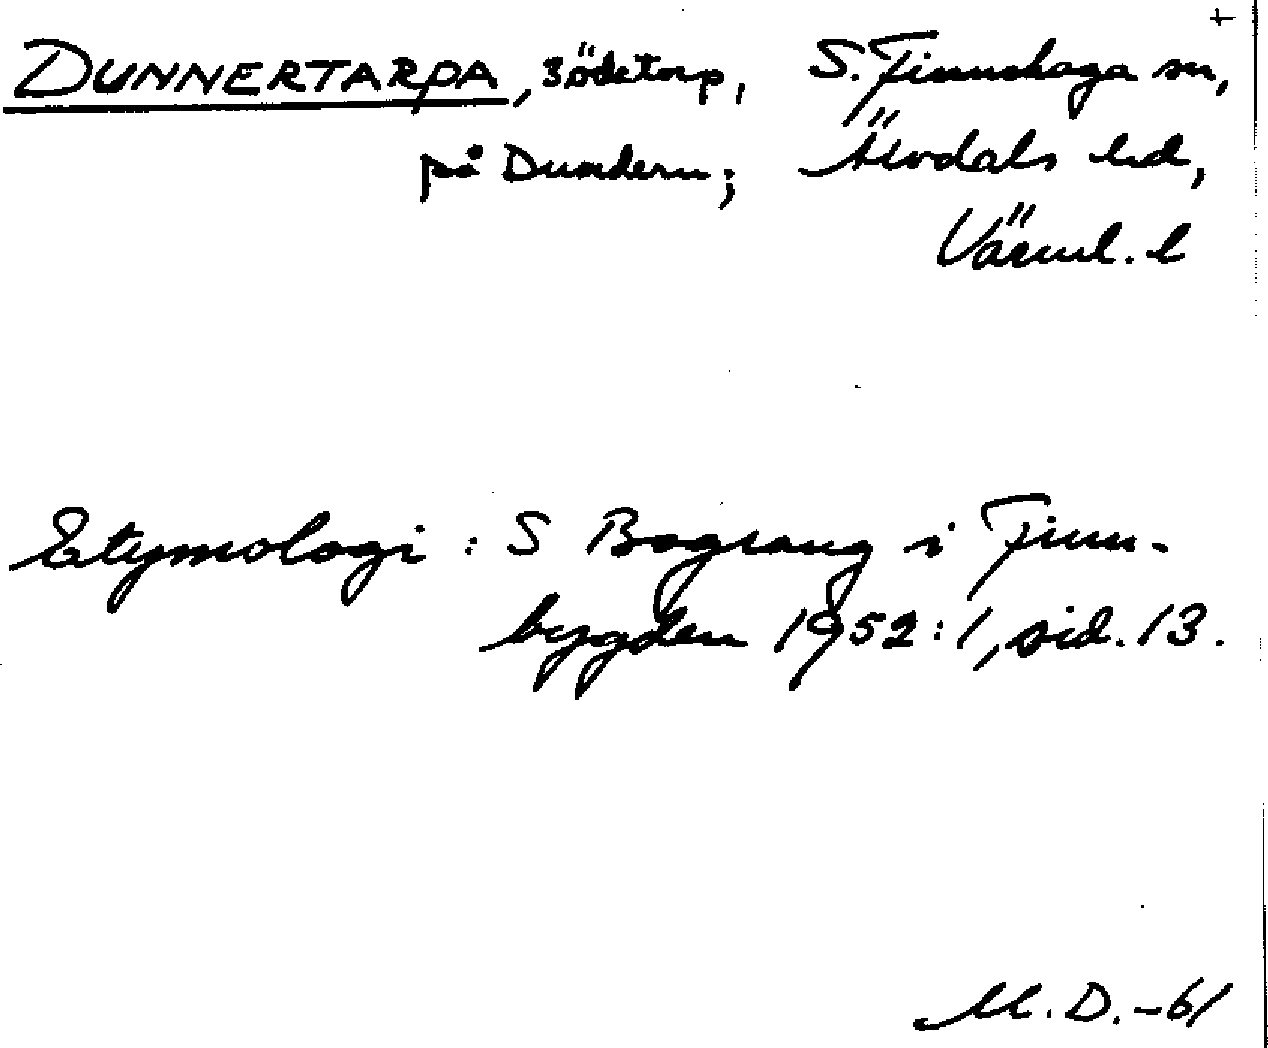 +
DUNNERTARPA, 3 ödetorp, S. Finnskoga sn,
på Dundern; Älvdals hd,
Värml. l
Etymologi : S Bograng i Finn-
bygden 1952:1, sid. 13.
M.D. -61